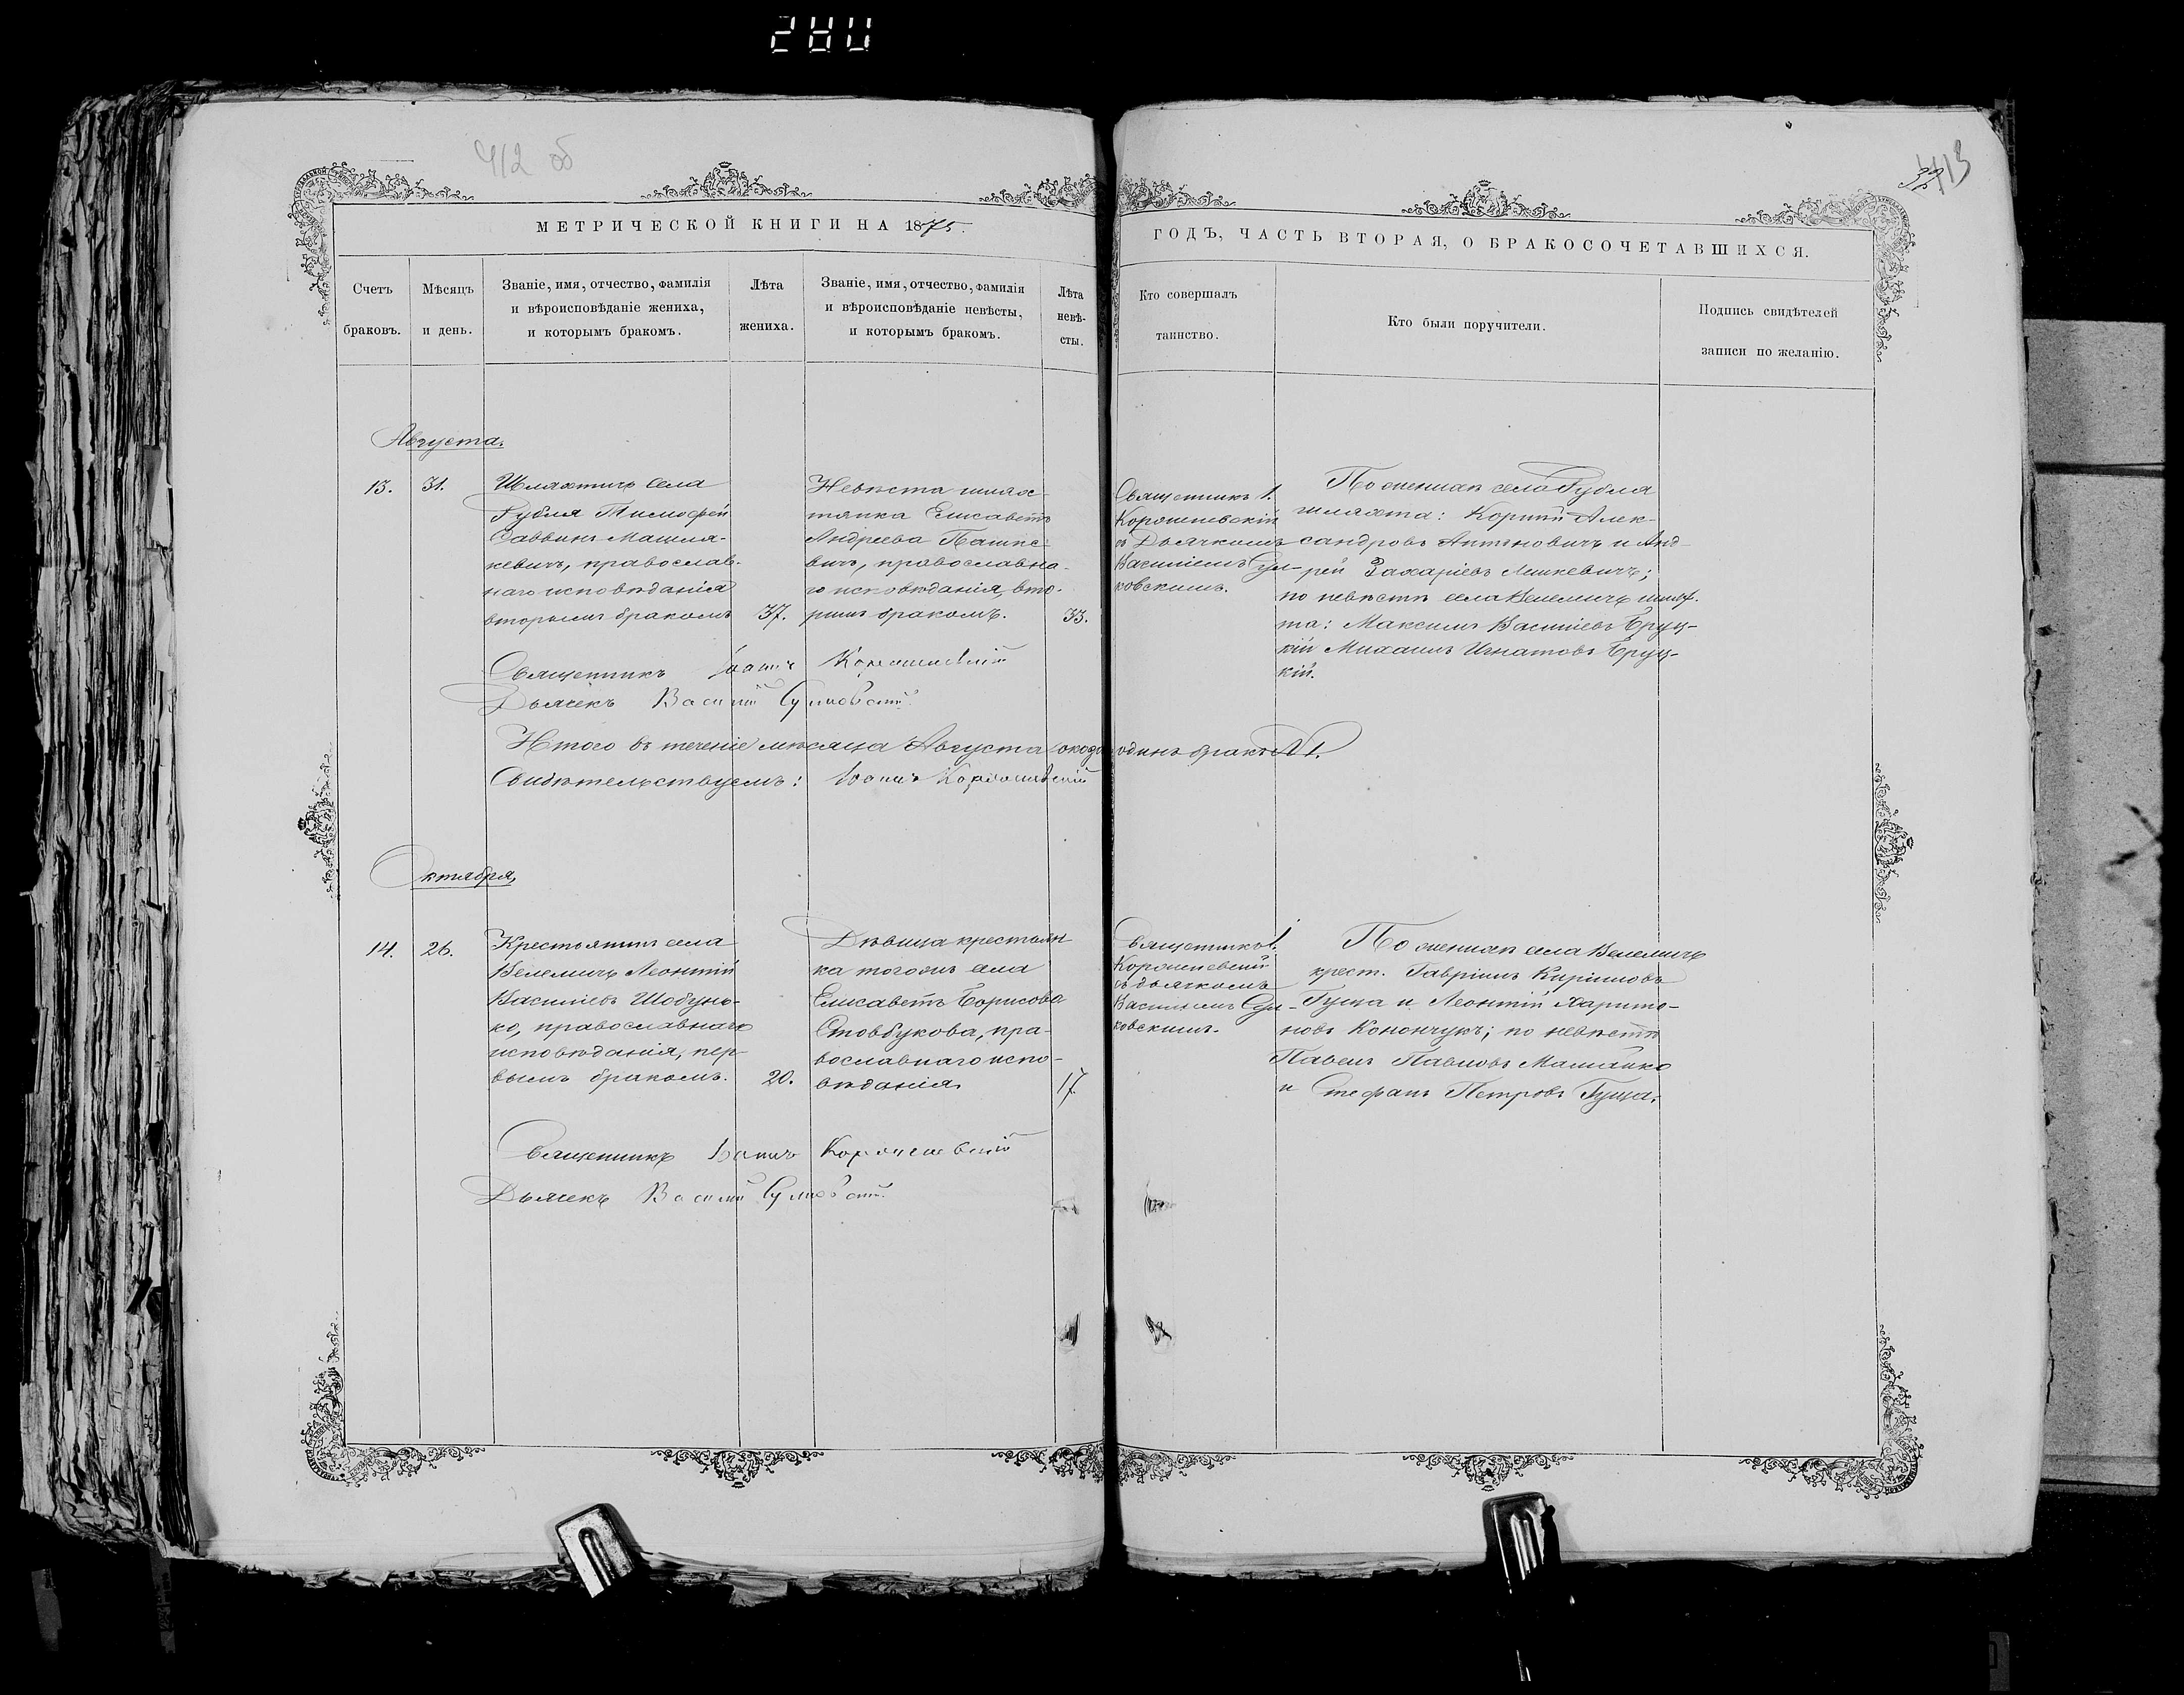 280
412 об
413
МЕТРИЧЕСКОЙ КНИГИ НА 1875
ГОДЪ, ЧАСТЬ ВТОРАЯ, О БРАКОСОЧЕТАВШИХСЯ.
Счетъ браковъ.
Мѣсяцъ и день.
Званіе, имя, отчество, фамилія
и вѣроисповѣданіе жениха,
и которымъ бракомъ.
Лѣта жениха.
Званіе, имя, отчество, фамилія
и вѣроисповѣданіе невѣсты,
и которымъ бракомъ.
Лѣта
невѣ-
сты.
Кто совершалъ
таинство.
Кто были поручители.
Подпись свидѣтелей
записи по желанію.
Августа.
13.
31.
Шляхтичъ села
Рубля Тимофей
Саввинъ Машля-
кевичъ, православ-
наго исповѣданія
вторымъ бракомъ
37.
Невѣста шлях-
тянка Елисаветъ
Андреева Пашке-
вичъ, православна-
го исповѣданія, вто-
рымъ бракомъ.
33.
Священникъ І.
Корженевскій
съ Дьячкомъ
Василіемъ Сул-
ковскимъ.
По женихѣ села Рубля
шляхта: Корній Алек-
сандровъ Антоновичъ и Анд-
рей Захаріевъ Лешкевичъ;
по невѣстѣ села Велемичъ шлях.
та: Максимъ Василіевъ Бруц-
кій Михаилъ Игнатовъ Бруц-
кій.
Священникъ Іоаннъ
Дьячекъ Василій
Итого въ теченіе мѣсяца Августа одинъ бракъ № 1.
Свидѣтельствуемъ: Іоаннъ
Октября
14.
26.
Крестьянинъ села
Велемичъ Леонтій
Василіевъ Шобунь-
ко, православнаго
исповѣданія, пер-
вымъ бракомъ.
20.
Дѣвица крестьян
ка тогожъ села
Елисаветъ Борисова
Стовбукова, пра-
вославнаго испо-
вѣданія
17.
Священникъ І.
Корженевскій
съ дьячкомъ
Василіемъ Сул-
ковскимъ.
По женихѣ села Велемичъ
крест. Гавріилъ Кириловъ
Гуща и Леонтій Харито-
новъ Конончукъ; по невѣстѣ
Павелъ Павловъ Машайко
и Стефанъ Петровъ Гуща.
Священникъ Іоаннъ
Дьячекъ Василій